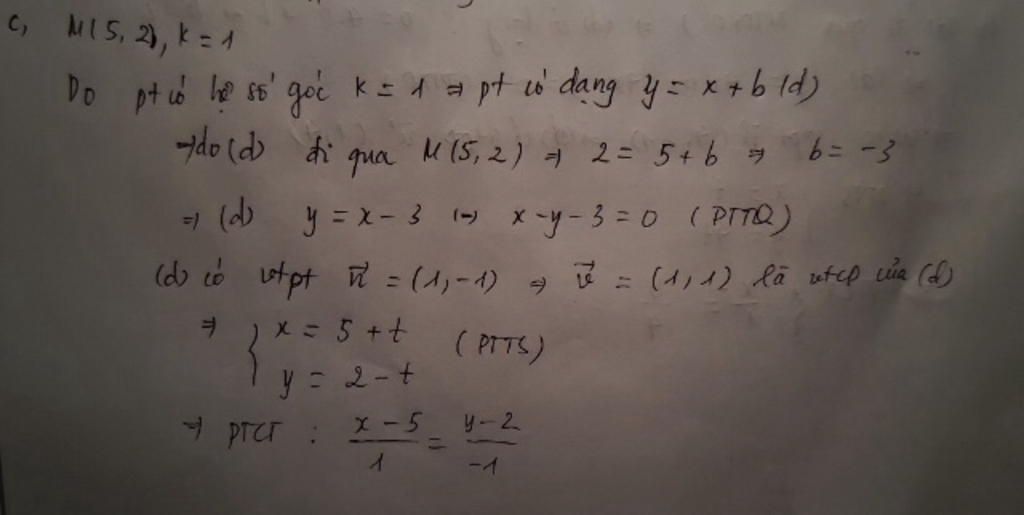 c, M(5, 2), k = 1
Do pt có hệ số góc k = 1 ⇒ pt có dạng y = x + b (d)
→ do (d) đi qua M(5, 2) ⇒ 2 = 5 + b ⇒ b = -3
⇒ (d) y = x - 3 (→ x - y - 3 = 0 (PTTQ)
(d) có vtpt n⃗ = (1, -1) ⇒ u⃗ = (1, 1) là vtcp của (d)
⇒ { x = 5 + t (PTTS)
y = 2 - t
→ PTCT : x - 5 / 1 = y - 2 / -1